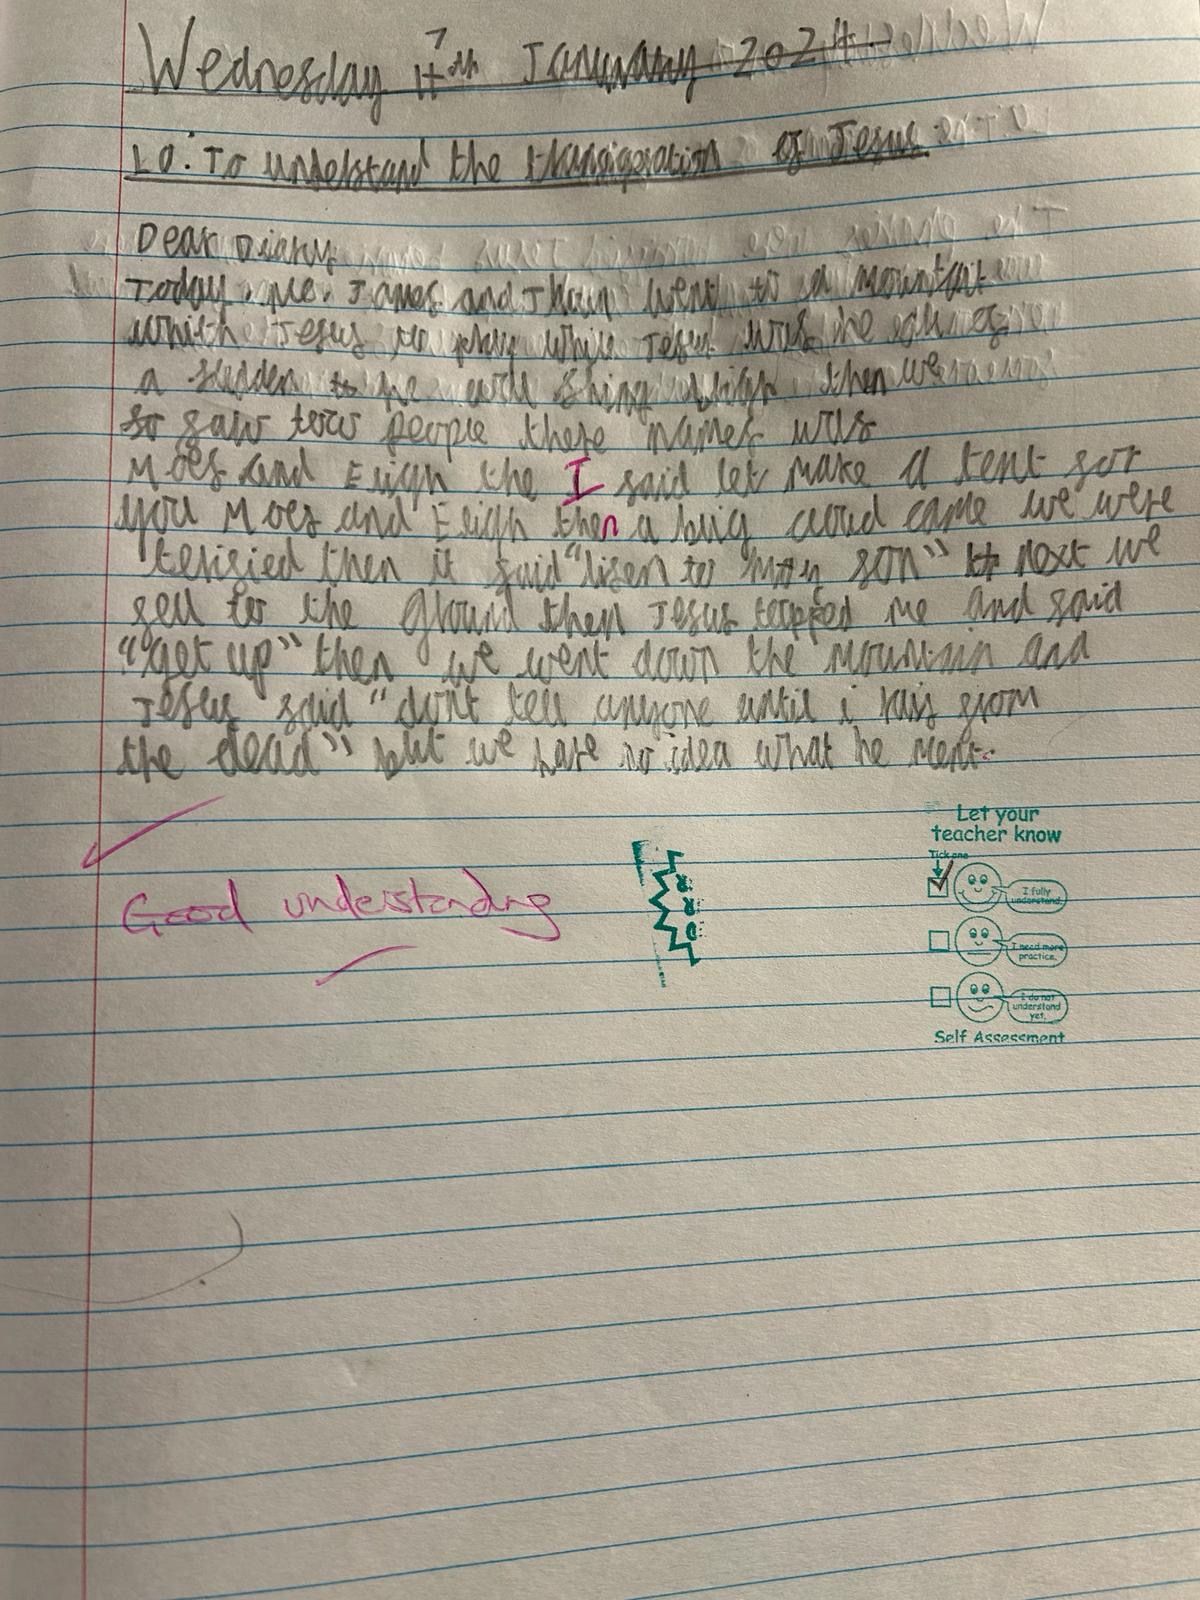 Wednesday 17th January 2024
LO: To understand the transfigeration of Jesus
Dear Diary
Today, me, James and Jhon went to a mountain
which Jesus to pray while Jesus was he all of
a sudden to he was then we
saw tow people there names was
Moes and Eligh the I said let make a tent for
you Moes and Eligh then a big cloud came we were
terified then it said "lisen to my son" next we
fell to the ground then Jesus tapped me and said
"get up" then we went down the mountain and
Jesus said "dont tell anyone until i rais from
the dead" but we have no idea what he ment.
Good understanding
Let your
teacher know
Tick one
I fully
understand.
I need more
practice.
I do not
understand
yet.
Self Assessment